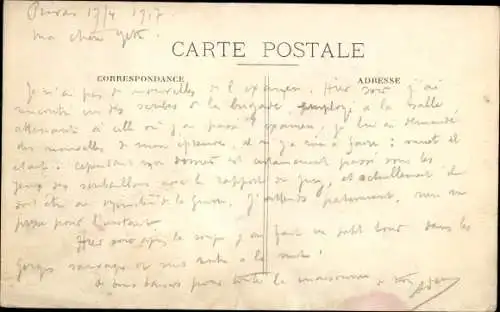 Privas 17/4 1917
ma chère Yette
CARTE POSTALE
CORRESPONDANCE
ADRESSE
Je n'ai pas de nouvelles de l'examen. Hier soir j'ai
rencontré un des scribes de la brigade, employé à la salle
attenante à celle où j'ai passé l'examen, je lui ai demandé
des nouvelles de mon épreuve, il n'y a rien à faire : muet il
était : cependant mon dossier est certainement passé sous les
yeux des
avec le rapport du jury, et actuellement il
doit être au ministère de la Guerre. J'attends patiemment, rien ne
presse pour l'instant
Hier soir après la soupe j'ai fait un petit tour dans les
Gorges sauvages et suis rentré à la nuit.
bons baisers pour toute la maisonnée